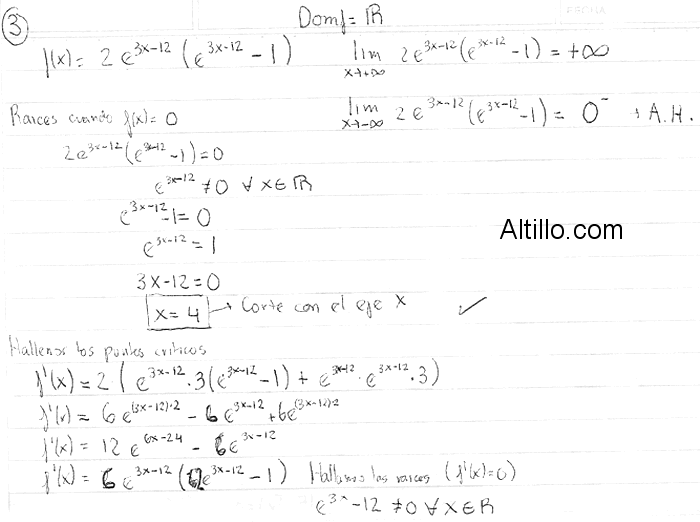 3
Domf = ℝ
f(x) = 2e^{3x-12} (e^{3x-12} - 1)
lim x→+∞ 2e^{3x-12}(e^{3x-12} - 1) = +∞
Raíces cuando f(x) = 0
lim x→-∞ 2e^{3x-12}(e^{3x-12} - 1) = 0⁻ → A.H.
2e^{3x-12}(e^{3x-12} - 1) = 0
e^{3x-12} ≠ 0 ∀ x ∈ ℝ
e^{3x-12} - 1 = 0
e^{3x-12} = 1
Altillo.com
3x - 12 = 0
x = 4 → Corte con el eje x ✓
Hallemos los puntos críticos
f'(x) = 2 (e^{3x-12} · 3(e^{3x-12} - 1) + e^{3x-12} · e^{3x-12} · 3)
f'(x) = 6e^{(3x-12)·2} - 6e^{3x-12} + 6e^{(3x-12)·2}
f'(x) = 12e^{6x-24} - 6e^{3x-12}
f'(x) = 6e^{3x-12} (2e^{3x-12} - 1) Hallamos las raíces (f'(x) = 0)
e^{3x} - 12 ≠ 0 ∀ x ∈ ℝ